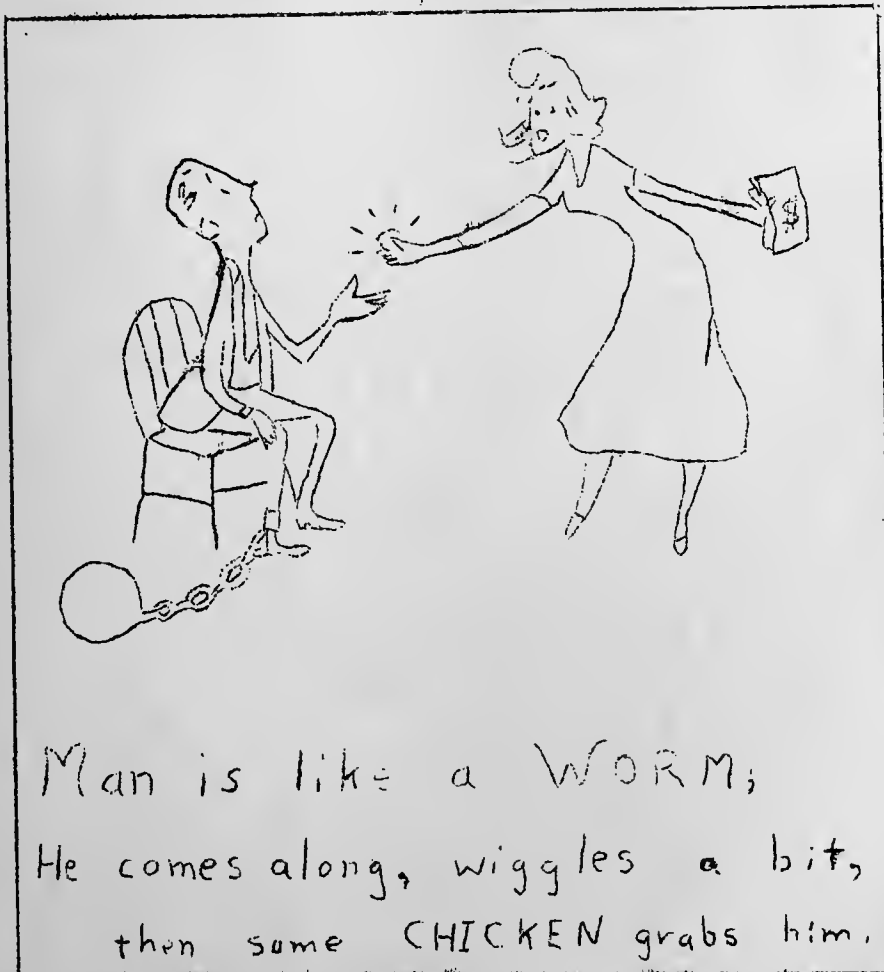 $
Man is like a WORM;
He comes along, wiggles a bit,
then some CHICKEN grabs him.